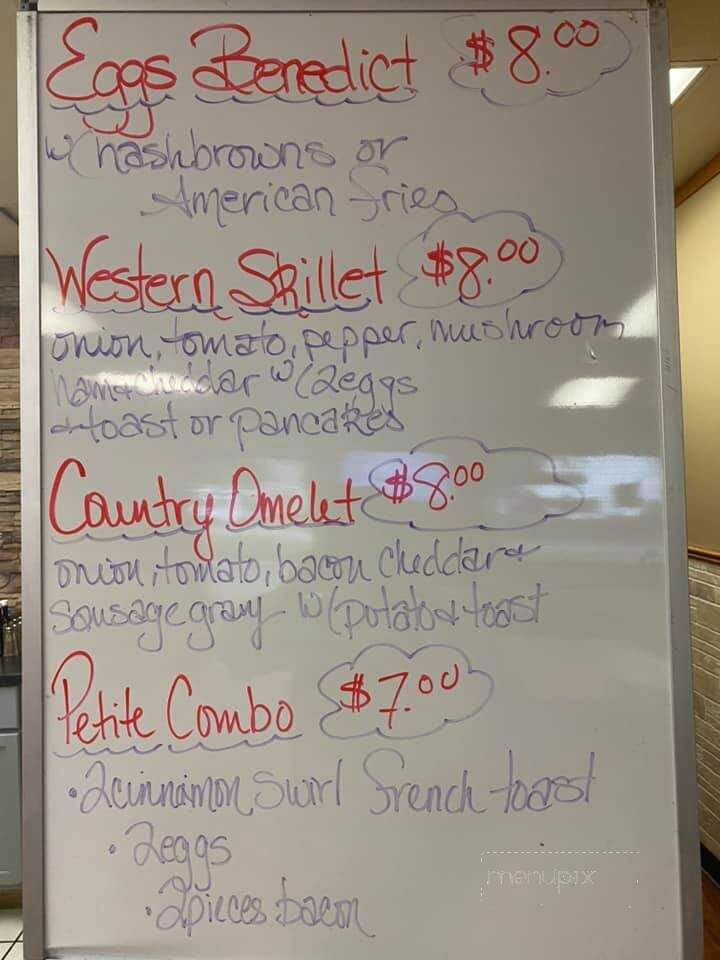 Eggs Benedict $8.00
w/ hashbrowns or
American fries
Western Skillet $8.00
onion, tomato, pepper, mushroom
ham + cheddar w/ 2eggs
+ toast or pancakes
Country Omelet $8.00
onion, tomato, bacon cheddar +
sausage gravy w/ potato + toast
Petite Combo $7.00
• 2cinnamon swirl french toast
• 2eggs
• 2pieces bacon
menupix